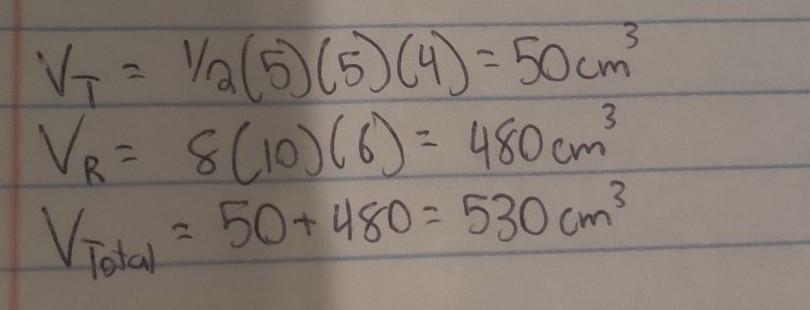 V_T = 1/2(5)(5)(4) = 50cm³
V_R = 8(10)(6) = 480cm³
V_Total = 50 + 480 = 530cm³